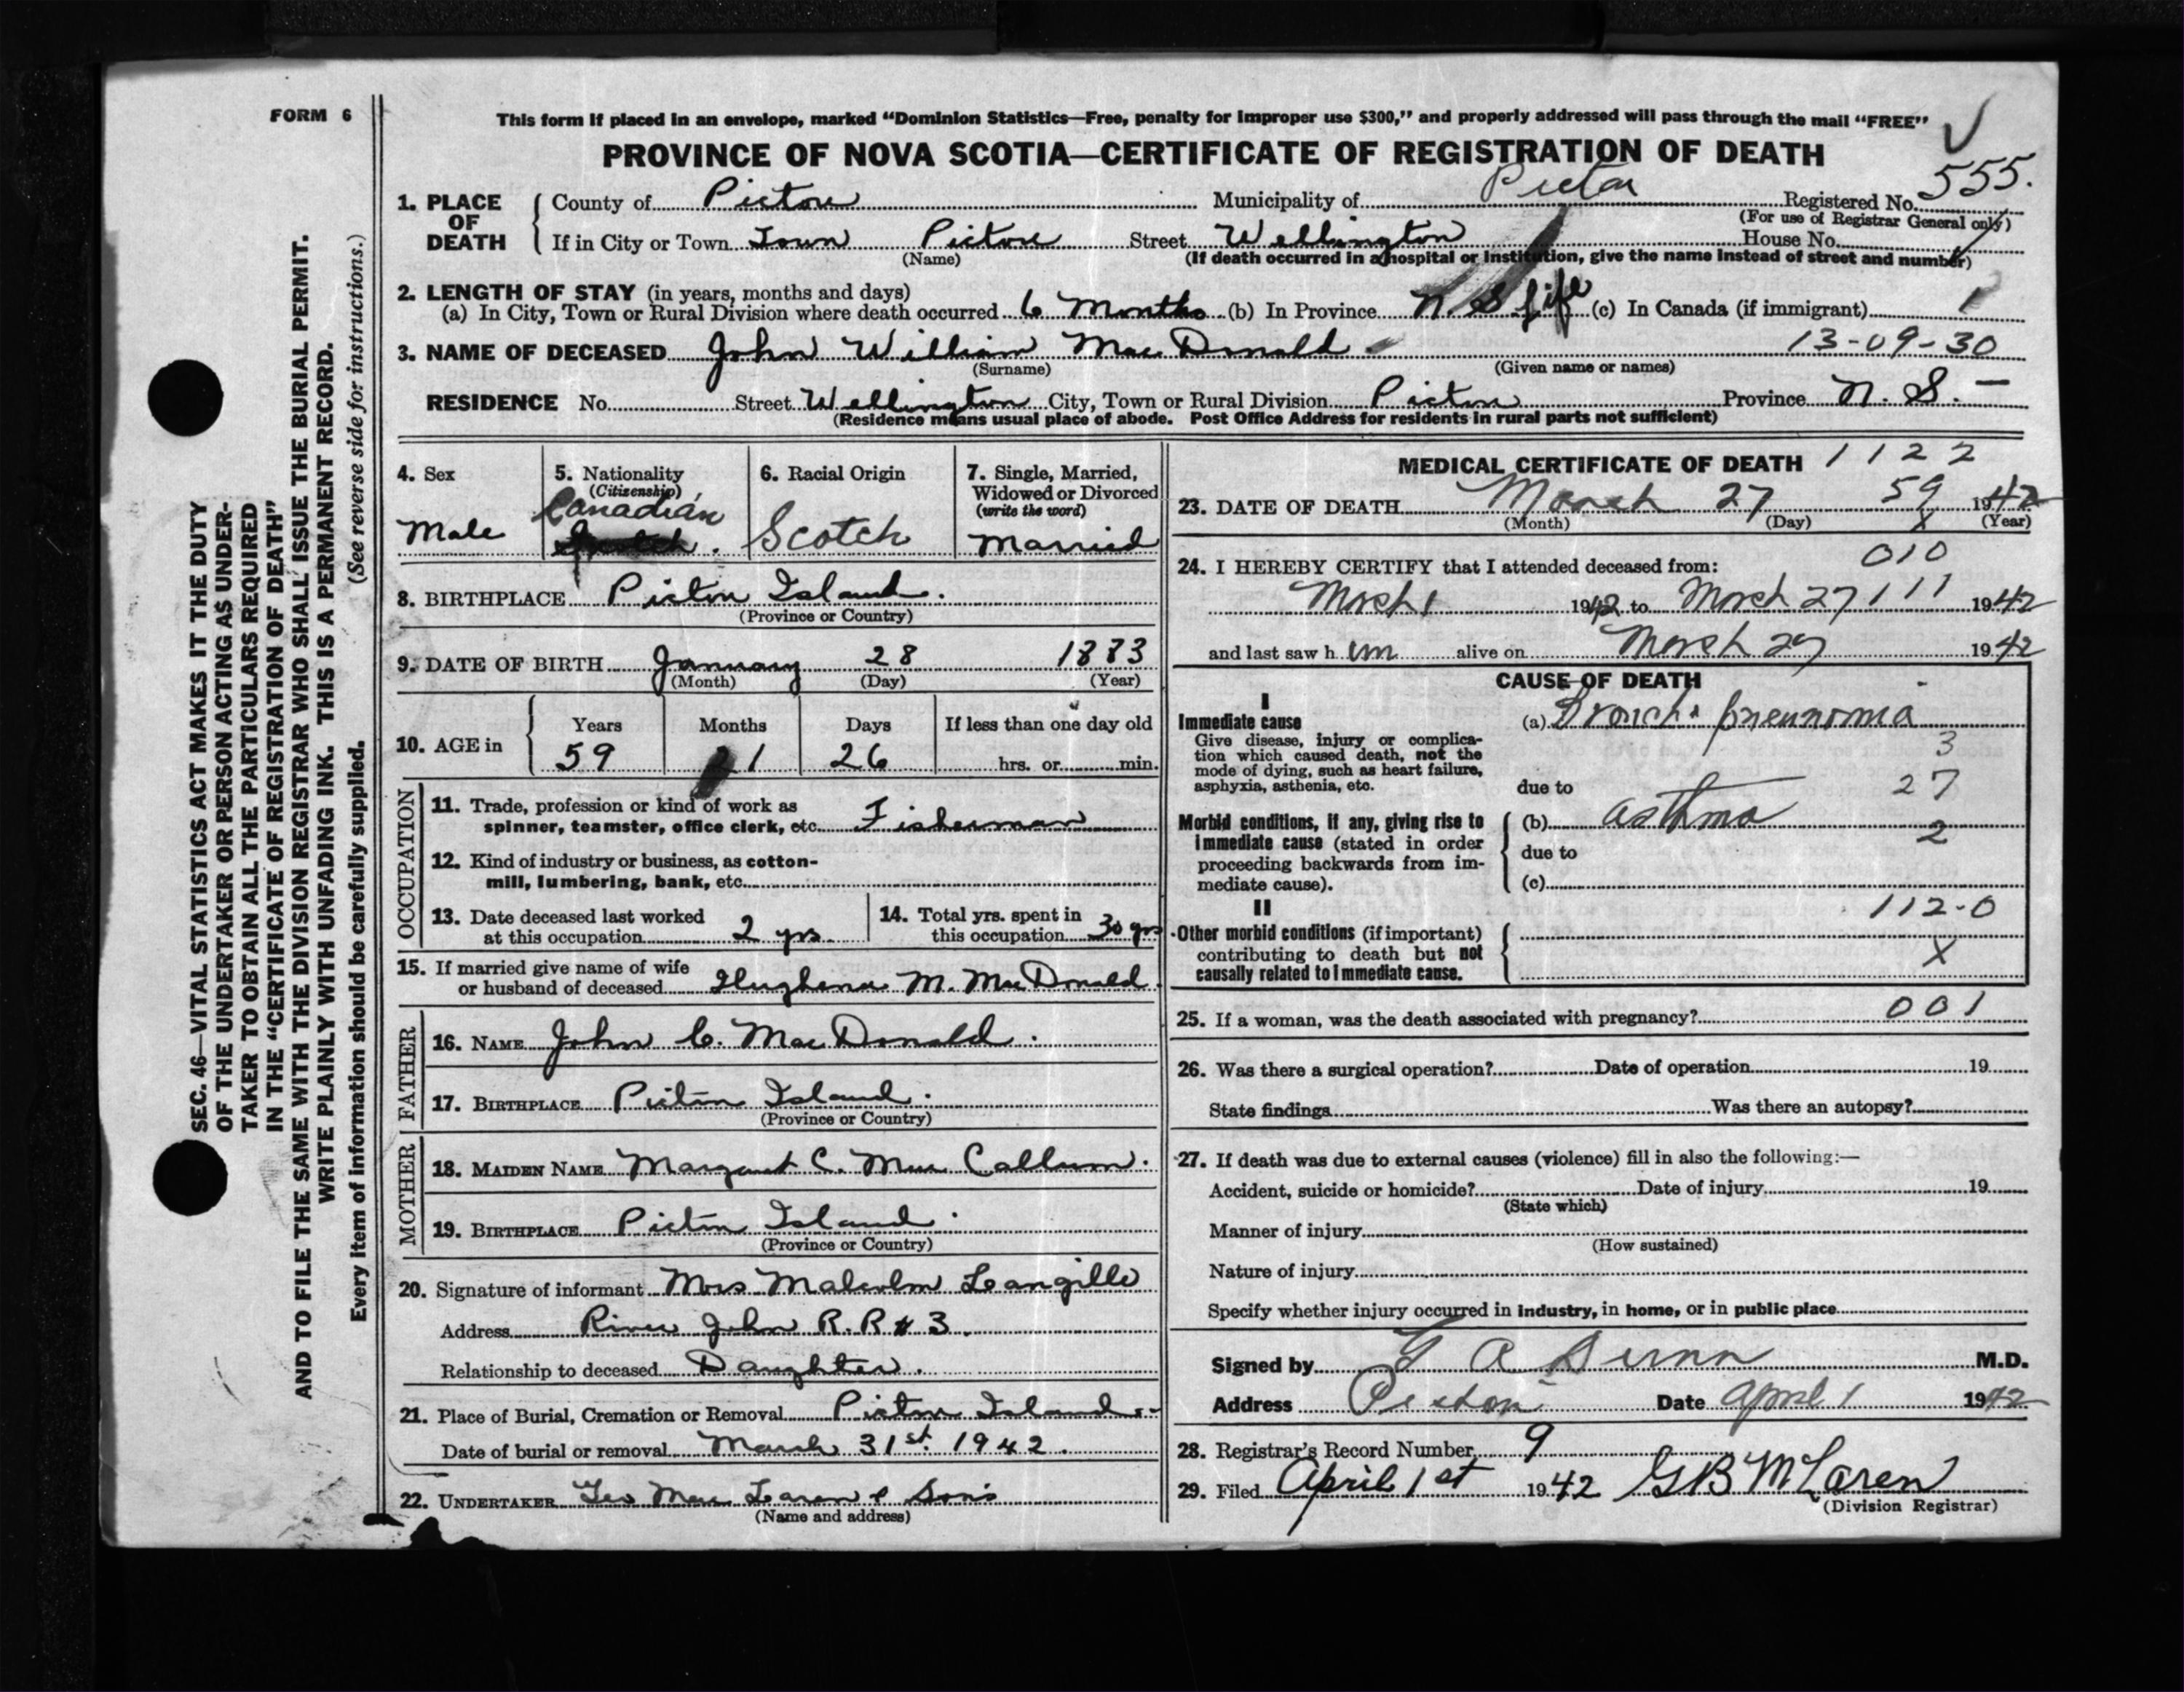 FORM 6
This form if placed in an envelope, marked “Dominion Statistics—Free, penalty for improper use $300,” and properly addressed will pass through the mail “FREE”
PROVINCE OF NOVA SCOTIA—CERTIFICATE OF REGISTRATION OF DEATH
555.
1. PLACE OF DEATH { County of Pictou Municipality of Pictou Registered No.
(For use of Registrar General only)
If in City or Town Town Pictou Street Wellington House No.
(Name) (If death occurred in a hospital or institution, give the name instead of street and number)
2. LENGTH OF STAY (in years, months and days)
(a) In City, Town or Rural Division where death occurred 6 Months (b) In Province N. S life (c) In Canada (if immigrant) 1
3. NAME OF DECEASED John William MacDonald 13-09-30
(Surname) (Given name or names)
RESIDENCE No. Street Wellington City, Town or Rural Division Pictou Province N. S. –
(Residence means usual place of abode. Post Office Address for residents in rural parts not sufficient)
4. Sex
Male
5. Nationality
(Citizenship)
Canadian
6. Racial Origin
Scotch
7. Single, Married,
Widowed or Divorced
(write the word)
Married
8. BIRTHPLACE Pictou Island.
(Province or Country)
9. DATE OF BIRTH January 28 1883
(Month) (Day) (Year)
10. AGE in
Years Months Days If less than one day old
59 1 26 hrs. or min.
OCCUPATION
11. Trade, profession or kind of work as
spinner, teamster, office clerk, etc. Fisherman
12. Kind of industry or business, as cotton-
mill, lumbering, bank, etc.
13. Date deceased last worked
at this occupation 2 yrs.
14. Total yrs. spent in
this occupation 30 yrs
15. If married give name of wife
or husband of deceased Hughena M. MacDonald.
FATHER
16. NAME John C. MacDonald.
17. BIRTHPLACE Pictou Island.
(Province or Country)
MOTHER
18. MAIDEN NAME Margaret C. MacCallum.
19. BIRTHPLACE Pictou Island.
(Province or Country)
20. Signature of informant Mrs Malcolm Langille
Address River John R.R # 3.
Relationship to deceased Daughter.
21. Place of Burial, Cremation or Removal Pictou Island.
Date of burial or removal March 31st. 1942.
22. UNDERTAKER Geo MacLaren & Sons
(Name and address)
MEDICAL CERTIFICATE OF DEATH 1122
23. DATE OF DEATH March 27 59 1942
(Month) (Day) X (Year)
24. I HEREBY CERTIFY that I attended deceased from: 010
March 1 1942 to March 27 111 1942
and last saw h im alive on March 27 1942
CAUSE OF DEATH
I
Immediate cause
Give disease, injury or complica-
tion which caused death, not the
mode of dying, such as heart failure,
asphyxia, asthenia, etc.
(a) Broncho pneumonia
3
due to 27
Morbid conditions, if any, giving rise to
immediate cause (stated in order
proceeding backwards from im-
mediate cause).
(b) asthma
2
due to
(c)
II
112-0
Other morbid conditions (if important)
contributing to death but not
causally related to immediate cause.
X
25. If a woman, was the death associated with pregnancy? 001
26. Was there a surgical operation? Date of operation 19
State findings Was there an autopsy?
27. If death was due to external causes (violence) fill in also the following:—
Accident, suicide or homicide? Date of injury 19
(State which)
Manner of injury
(How sustained)
Nature of injury
Specify whether injury occurred in industry, in home, or in public place
Signed by G A Dunn M.D.
Address Pictou Date April 1 1942
28. Registrar's Record Number 9
29. Filed April 1st 1942 G B McLaren
(Division Registrar)
SEC. 46—VITAL STATISTICS ACT MAKES IT THE DUTY
OF THE UNDERTAKER OR PERSON ACTING AS UNDER-
TAKER TO OBTAIN ALL THE PARTICULARS REQUIRED
IN THE “CERTIFICATE OF REGISTRATION OF DEATH”
AND TO FILE THE SAME WITH THE DIVISION REGISTRAR WHO SHALL ISSUE THE BURIAL PERMIT.
WRITE PLAINLY WITH UNFADING INK. THIS IS A PERMANENT RECORD.
Every item of information should be carefully supplied. (See reverse side for instructions.)